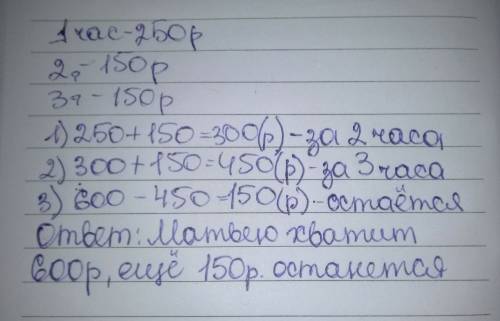 1 час - 250р
2ч - 150р
3ч - 150р
1) 250+150=300(р) - за 2 часа
2) 300+150=450(р) - за 3 часа
3) 600 - 450=150(р) - остаётся
Ответ: Матвею хватит
600р, ещё 150р. останется